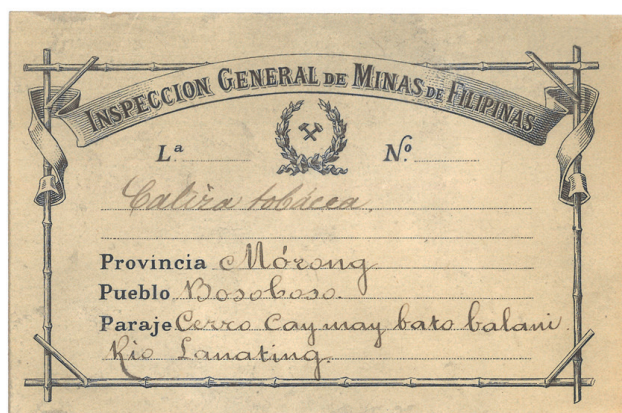 INSPECCION GENERAL DE MINAS DE FILIPINAS
L.a Nº.
Caliza tobácea.
Provincia Mórong
Pueblo Bosoboso.
Paraje Cerro Caymay bato balani
Rio Lanating.